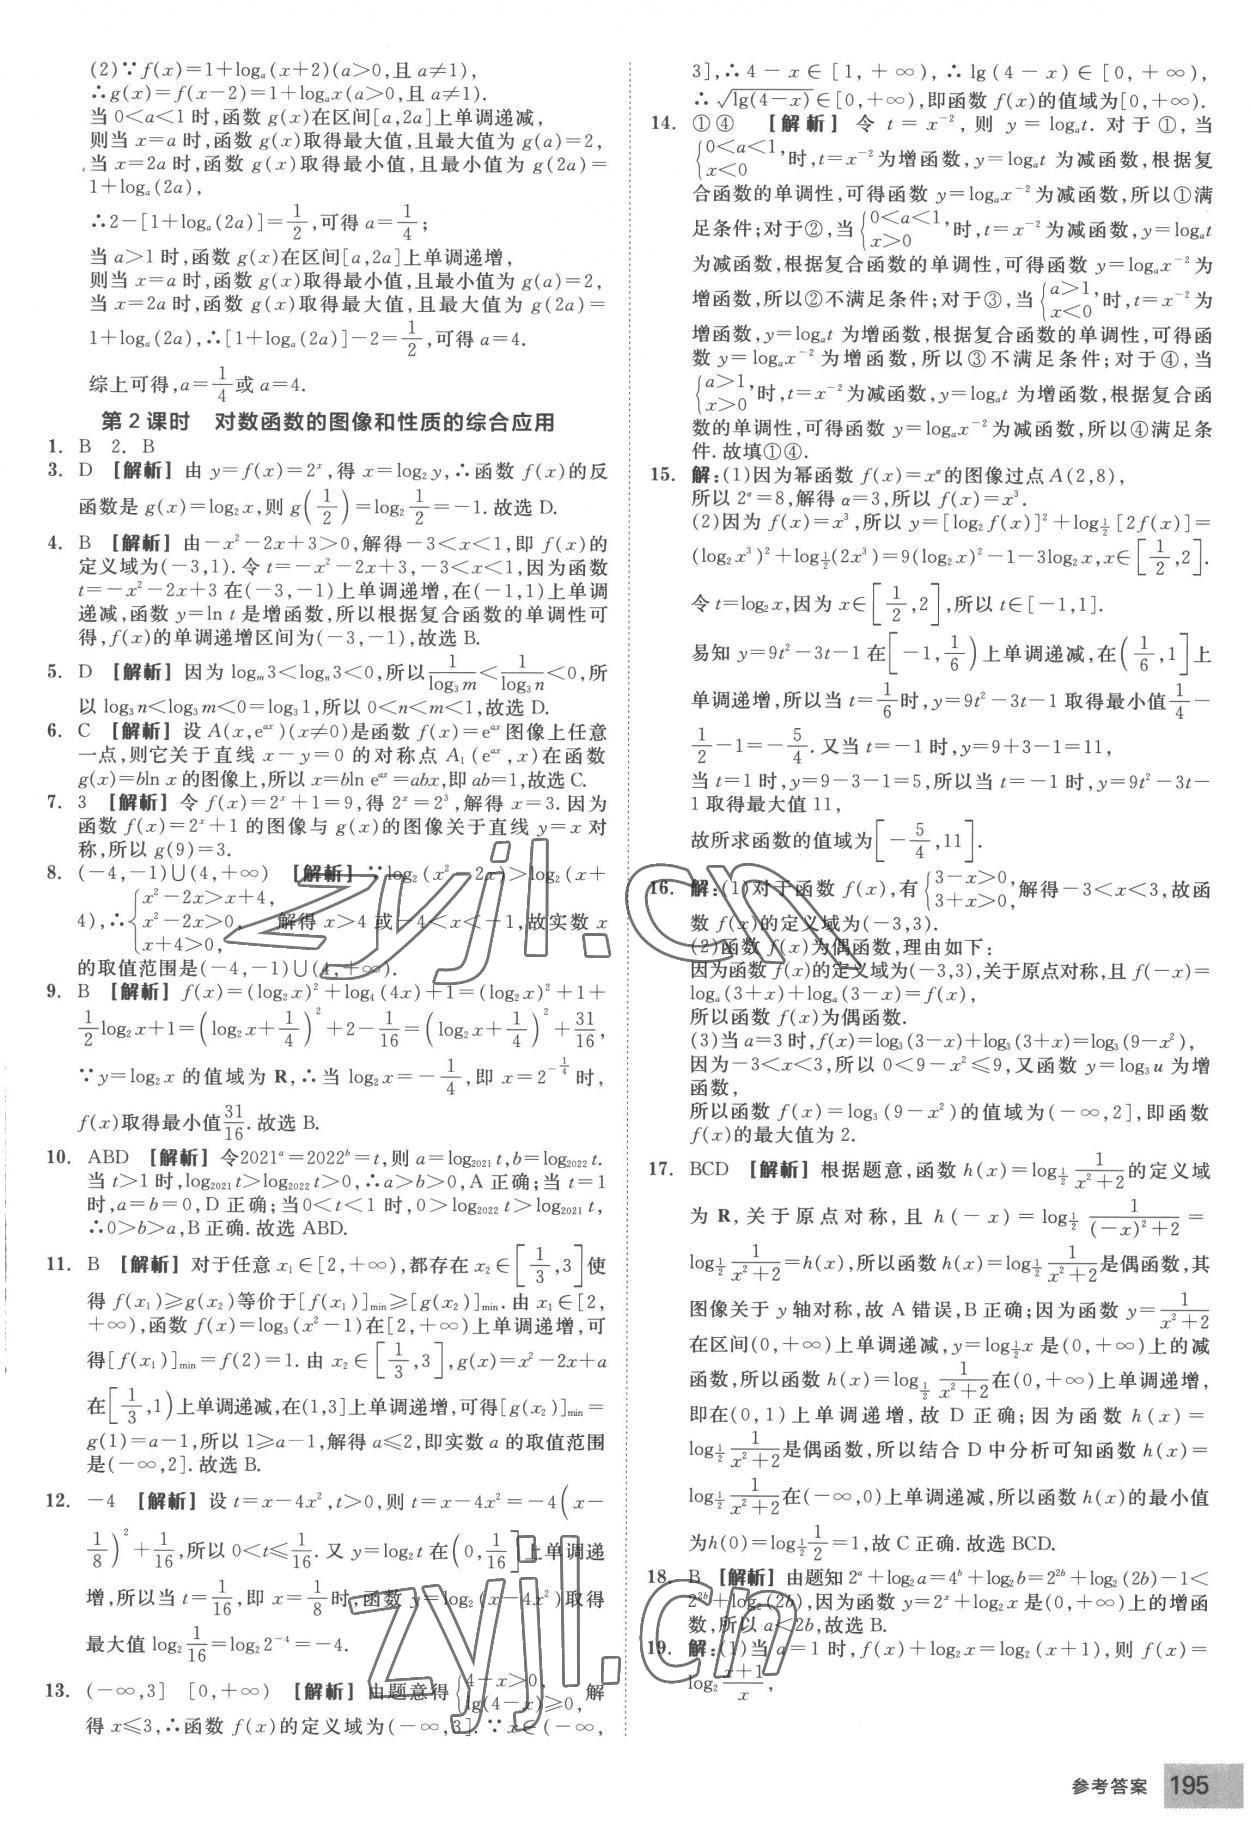 (2)∵f(x)=1+logₐ(x+2)(a>0,且 a≠1),
∴g(x)=f(x-2)=1+logₐx(a>0,且 a≠1).
当 0<a<1 时,函数 g(x)在区间[a,2a]上单调递减,
则当 x=a 时,函数 g(x)取得最大值,且最大值为 g(a)=2,
当 x=2a 时,函数 g(x)取得最小值,且最小值为 g(2a)=
1+logₐ(2a),
∴2-[1+logₐ(2a)]=1/2,可得 a=1/4;
当 a>1 时,函数 g(x)在区间[a,2a]上单调递增,
则当 x=a 时,函数 g(x)取得最小值,且最小值为 g(a)=2,
当 x=2a 时,函数 g(x)取得最大值,且最大值为 g(2a)=
1+logₐ(2a),∴[1+logₐ(2a)]-2=1/2,可得 a=4.
综上可得,a=1/4或 a=4.
第 2 课时 对数函数的图像和性质的综合应用
1. B 2. B
3. D 【解析】由 y=f(x)=2ˣ,得 x=log₂y,∴函数 f(x)的反
函数是 g(x)=log₂x,则 g(1/2)=log₂1/2=-1.故选 D.
4. B 【解析】由-x²-2x+3>0,解得-3<x<1,即 f(x)的
定义域为(-3,1).令 t=-x²-2x+3,-3<x<1,因为函数
t=-x²-2x+3 在(-3,-1)上单调递增,在(-1,1)上单调
递减,函数 y=ln t 是增函数,所以根据复合函数的单调性可
得,f(x)的单调递增区间为(-3,-1),故选 B.
5. D 【解析】因为 logₘ3<logₙ3<0,所以1/log₃m<1/log₃n<0,所
以 log₃n<log₃m<0=log₃1,所以 0<n<m<1,故选 D.
6. C 【解析】设 A(x,eᵃˣ)(x≠0)是函数 f(x)=eᵃˣ图像上任意
一点,则它关于直线 x-y=0 的对称点 A₁(eᵃˣ,x)在函数
g(x)=bln x 的图像上,所以 x=bln eᵃˣ=abx,即 ab=1,故选 C.
7. 3 【解析】令 f(x)=2ˣ+1=9,得 2ˣ=2³,解得 x=3.因为
函数 f(x)=2ˣ+1 的图像与 g(x)的图像关于直线 y=x 对
称,所以 g(9)=3.
8. (-4,-1)∪(4,+∞) 【解析】∵log₂(x²-2x)>log₂(x+
4),∴{x²-2x>x+4, x²-2x>0, x+4>0, 解得 x>4 或-4<x<-1,故实数 x
的取值范围是(-4,-1)∪(4,+∞).
9. B 【解析】f(x)=(log₂x)²+log₄(4x)+1=(log₂x)²+1+
1/2log₂x+1=(log₂x+1/4)²+2-1/16=(log₂x+1/4)²+31/16,
∵y=log₂x 的值域为 R,∴当 log₂x=-1/4,即 x=2^(-1/4)时,
f(x)取得最小值31/16.故选 B.
10. ABD 【解析】令2021ᵃ=2022ᵇ=t,则 a=log₂₀₂₁t,b=log₂₀₂₂t.
当 t>1 时,log₂₀₂₁t>log₂₀₂₂t>0,∴a>b>0,A 正确;当 t=1
时,a=b=0,D 正确;当0<t<1 时,0>log₂₀₂₂t>log₂₀₂₁t,
∴0>b>a,B 正确.故选 ABD.
11. B 【解析】对于任意 x₁∈[2,+∞),都存在 x₂∈[1/3,3]使
得 f(x₁)≥g(x₂)等价于[f(x₁)]min≥[g(x₂)]min.由 x₁∈[2,
+∞),函数 f(x)=log₃(x²-1)在[2,+∞)上单调递增,可
得[f(x₁)]min=f(2)=1.由 x₂∈[1/3,3],g(x)=x²-2x+a
在[1/3,1)上单调递减,在(1,3]上单调递增,可得[g(x₂)]min=
g(1)=a-1,所以 1≥a-1,解得 a≤2,即实数 a 的取值范围
是(-∞,2].故选 B.
12. -4 【解析】设 t=x-4x²,t>0,则 t=x-4x²=-4(x-
1/8)²+1/16,所以 0<t≤1/16.又 y=log₂t 在(0,1/16]上单调递
增,所以当 t=1/16,即 x=1/8时,函数 y=log₂(x-4x²)取得
最大值 log₂1/16=log₂2⁻⁴=-4.
13. (-∞,3] [0,+∞) 【解析】由题意得{4-x>0, lg(4-x)≥0, 解
得 x≤3,∴函数 f(x)的定义域为(-∞,3].∵x∈(-∞,
3],∴4-x∈[1,+∞),∴lg(4-x)∈[0,+∞),
∴√lg(4-x)∈[0,+∞),即函数 f(x)的值域为[0,+∞).
14. ①④ 【解析】令 t=x⁻²,则 y=logₐt.对于①,当
{0<a<1, x<0 时,t=x⁻²为增函数,y=logₐt 为减函数,根据复
合函数的单调性,可得函数 y=logₐx⁻²为减函数,所以①满
足条件;对于②,当{0<a<1, x>0 时,t=x⁻²为减函数,y=logₐt
为减函数,根据复合函数的单调性,可得函数 y=logₐx⁻²为
增函数,所以②不满足条件;对于③,当{a>1, x<0 时,t=x⁻²为
增函数,y=logₐt 为增函数,根据复合函数的单调性,可得函
数 y=logₐx⁻²为增函数,所以③不满足条件;对于④,当
{a>1, x>0 时,t=x⁻²为减函数,y=logₐt 为增函数,根据复合函
数的单调性,可得函数 y=logₐx⁻²为减函数,所以④满足条
件.故填①④.
15. 解:(1)因为幂函数 f(x)=xᵅ的图像过点 A(2,8),
所以 2ᵅ=8,解得 α=3,所以 f(x)=x³.
(2)因为 f(x)=x³,所以 y=[log₂f(x)]²+log_(1/2)[2f(x)]=
(log₂x³)²+log_(1/2)(2x³)=9(log₂x)²-1-3log₂x,x∈[1/2,2].
令 t=log₂x,因为 x∈[1/2,2],所以 t∈[-1,1].
易知 y=9t²-3t-1 在[-1,1/6)上单调递减,在(1/6,1]上
单调递增,所以当 t=1/6时,y=9t²-3t-1 取得最小值1/4-
1/2-1=-5/4.又当 t=-1 时,y=9+3-1=11,
当 t=1 时,y=9-3-1=5,所以当 t=-1 时,y=9t²-3t-
1 取得最大值 11,
故所求函数的值域为[-5/4,11].
16. 解:(1)对于函数 f(x),有{3-x>0, 3+x>0, 解得-3<x<3,故函
数 f(x)的定义域为(-3,3).
(2)函数 f(x)为偶函数,理由如下:
因为函数 f(x)的定义域为(-3,3),关于原点对称,且 f(-x)=
logₐ(3+x)+logₐ(3-x)=f(x),
所以函数 f(x)为偶函数.
(3)当 a=3 时,f(x)=log₃(3-x)+log₃(3+x)=log₃(9-x²),
因为-3<x<3,所以 0<9-x²≤9,又函数 y=log₃u 为增
函数,
所以函数 f(x)=log₃(9-x²)的值域为(-∞,2],即函数
f(x)的最大值为 2.
17. BCD 【解析】根据题意,函数 h(x)=log_(1/2) 1/(x²+2)的定义域
为 R,关于原点对称,且 h(-x)=log_(1/2) 1/((-x)²+2)=
log_(1/2) 1/(x²+2)=h(x),所以函数 h(x)=log_(1/2) 1/(x²+2)是偶函数,其
图像关于 y 轴对称,故 A 错误,B 正确;因为函数 y=1/(x²+2)
在区间(0,+∞)上单调递减,y=log_(1/2)x 是(0,+∞)上的减
函数,所以函数 h(x)=log_(1/2) 1/(x²+2)在(0,+∞)上单调递增,
即在(0,1)上单调递增,故 D 正确;因为函数 h(x)=
log_(1/2) 1/(x²+2)是偶函数,所以结合 D 中分析可知函数 h(x)=
log_(1/2) 1/(x²+2)在(-∞,0)上单调递减,所以函数 h(x)的最小值
为h(0)=log_(1/2) 1/2=1,故 C 正确.故选 BCD.
18. B 【解析】由题知 2ᵃ+log₂a=4ᵇ+log₂b=2²ᵇ+log₂(2b)-1<
2²ᵇ+log₂(2b),因为函数 y=2ˣ+log₂x 是(0,+∞)上的增函
数,所以 a<2b,故选 B.
19. 解:(1)当 a=1 时,f(x)+log₂x=log₂(x+1),则 f(x)=
log₂(x+1)/x,
参考答案 195
zyjl.cn
zyjl.cn